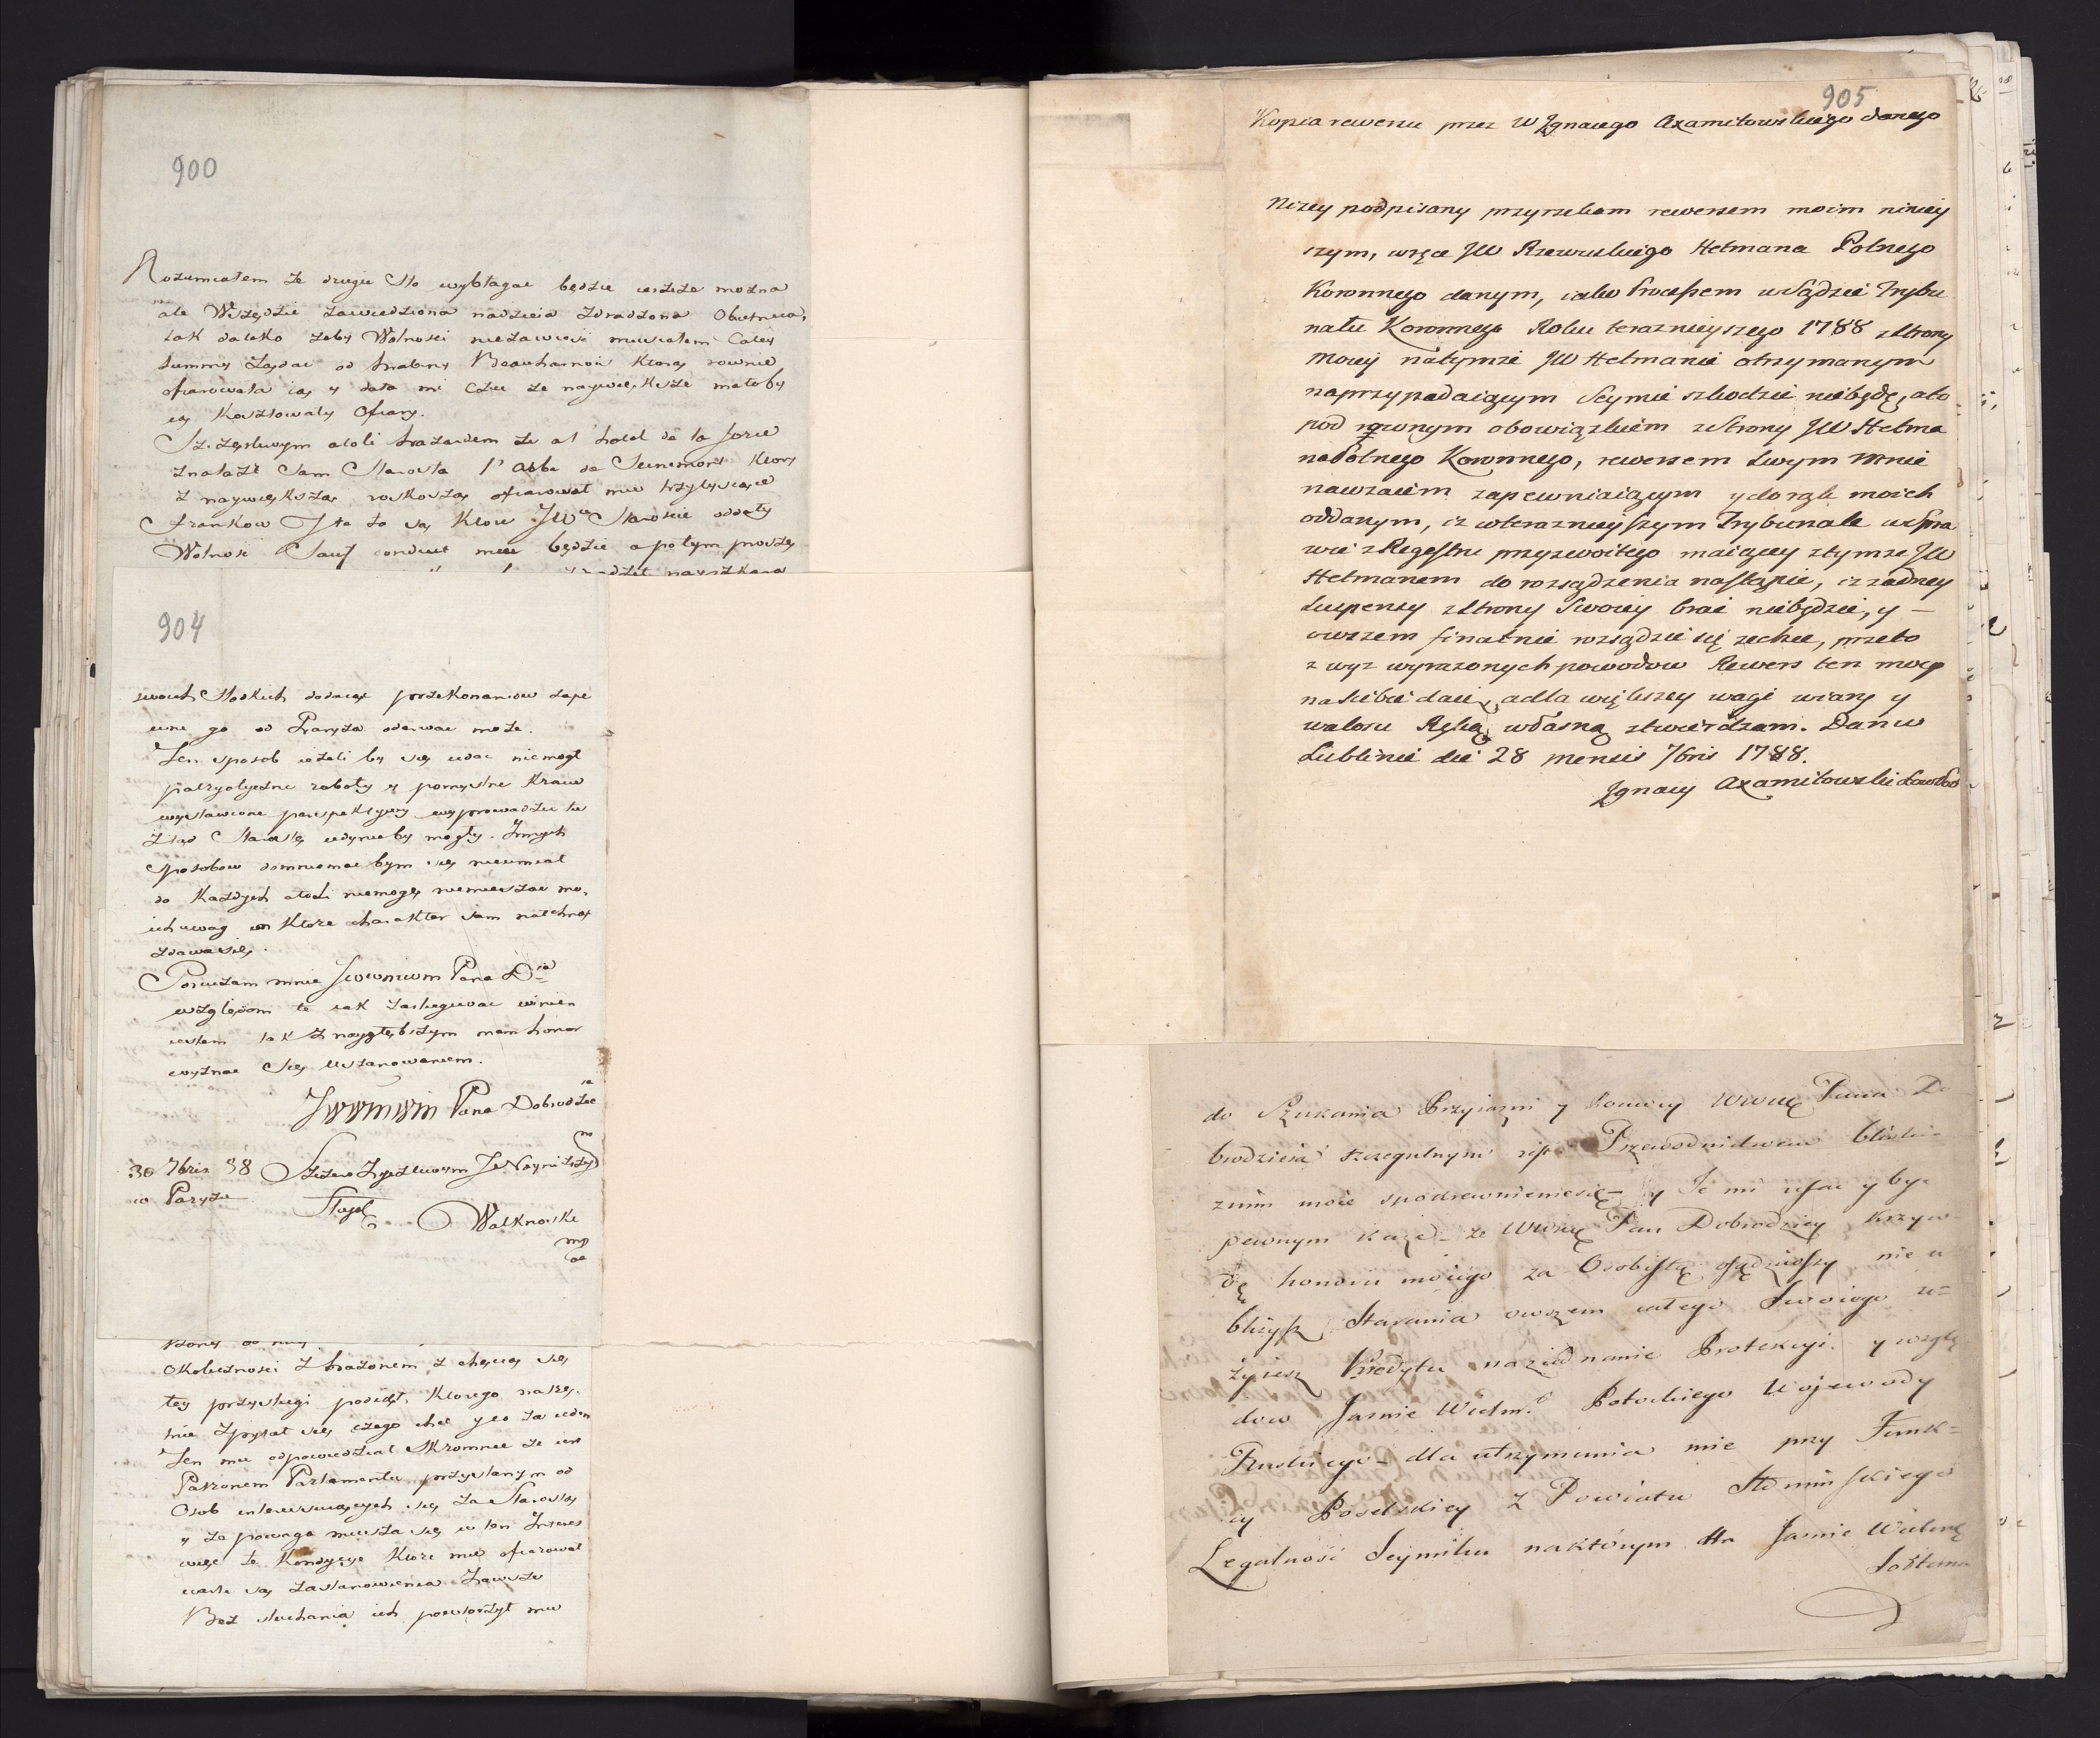 900
Rozumiałem że drugie sto wybłagac będzie ieszcze można
ale Wszędzie zawiedziona nadzieia zdradzona Obietnica,
tak daleko żeby Wolnosci niezawiesi musiałem Całey
Summy żądac od hrabiny Beauharnois ktorą rownie
ofiarowała ią y dała mi czuc że naywięksże małoby
ią kosztowały Ofiary.
Szczęsliwym atoli trażardem że a l' hotel de la force
znalazł Sam Starosta l' abbe de ktory
z naywiększą roskoszą ofiarował mu trzytysiące
frankow Jta to są ktore JWu Staroscie oddały
Wolnosc Sauf conduit miec będzie a potym proszę
904
swoich Słodkich dodaiąc przekonaniow zape
wne go od Paryża oderwac może.
Ten sposob ieżeli by się udac niemogł
patryotyczne roboty y pomyslne Kraiu
wystawione perspektywy wyprowadzic tu
ztąd Starostę iedynieby mogły. Innych
sposobow domniemac bym się nieumiał
do każdych atoli niemogę niemieszac mo,
ich uwag ktore charakter sam natchnąć
zdawasię.
Poruczam mnie Jwwmwm Pana Dia
względom te iak zasługiwac winien
iestem tak z naygłębszym mam honor
wyznac się uszanowaniem.
Jwwmwm Pana Dobrodzieia
30 7bris 88 Szczero Życzliwym i Nayniższym
w Paryżu Sługą
Walknowski
mp
okoliczności z trażonem z chęcią się
tey przysługi podiął, ktorego natrę,
tnie zpytał się czego chce y co za ieden
Ten mu odpowiedział skromnie że iest
Patronem Parlamentu przysłanym od
Osob interessuiących się za Starostą
y że powaga miesza się w ten Interes
więc te kondycye ktore mu ofiarował
warte są zastanowienia zawsze
Bez słuchania ich powtorzył mu
905
Kopia rewersu przez W Jgnacego Axamitowskiego danego
Nizey podpisany przyrzekam rewersem moim niniey
szym, wręce JW Rzewuskiego Hetmana Polnego
Koronnego danym, iako Processem wSądzie Trybu
nału Koronnego Roku terazniejszego 1788 zStrony
Moiey natymze JW Hetmanie otrzymanym
naprzypadaiącym Seymie szkodzic niebędę, ato
pod rownym obowiązkiem zStrony JW Hetma
naPolnego Koronnego, rewersem Swym mnie
nawzaiem zapewniaiącym y do rąk moich
oddanym, iz wterazniejszym Trybunale wSpra
wie zRegestru przyzwoitego maiącey ztymze JW
Hetmanem do rozsądzenia nastąpic, iz zadney
Suspensy zStrony Swoiey brac niebędzie, y —
owszem finalnie rozsądzic się zechce, przeto
z wyz wyrazonych powodow Rewers ten mocą
naSiebie daię, adla większey wagi wiary y
waloru Ręką własną stwierdzam. Dan w
Lublinie die 28 Mensis 7bris 1788.
Jgnacy Axamitowski
do Szukania Przyiazni y Pomocy WWMę Pana Do
brodzieia szczegulnym iest Przewodnictwem bliskie
znim moie spokrewnieniesię — y Te mi ufac y byc
pewnym każe — że WWMę Pan Dobrodziey krzyw
dę honoru moiego za Osobistą osądziwszy nie u
bliżysz Starania owszem całego Swoiego u=
żyiesz kredytu naziednanie Protekcyi y wzglę
dow Jasnie Wielm.o Potockiego Wojewody
Ruskiego — dla utrzymania mie przy Funk=
cyi Poselskiey z Powiatu Słonimskiego
Legalnosć Seymiku naktórym Jasnie Wielmę
Sołtana